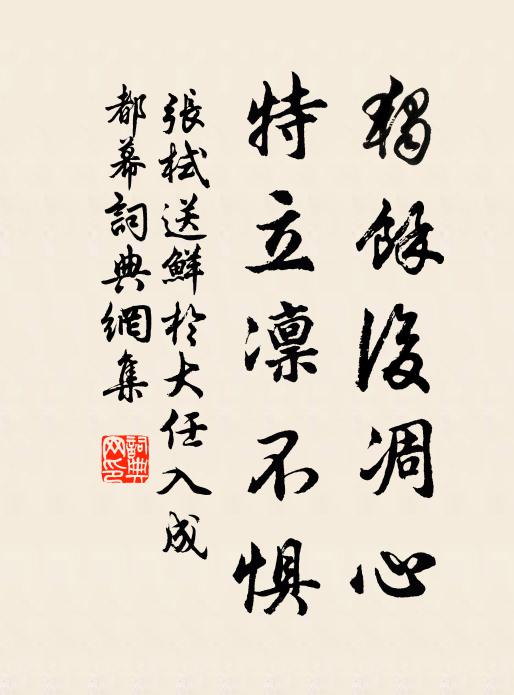 獨餘後凋心
特立凜不懼
張栻送鮮於大任入成
都幕詞典網集
詞典
网印